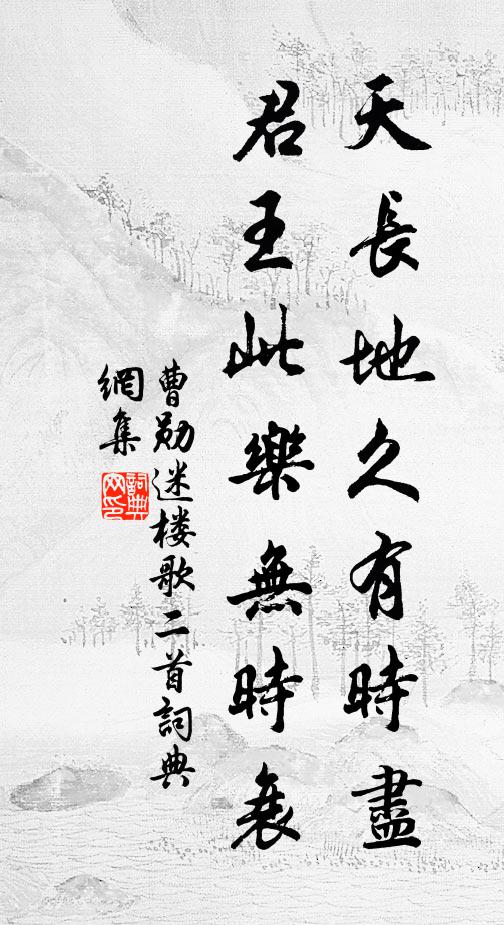 天長地久有時盡
君王此樂無時衰
曹勛迷楼歌二首詞典
網集
詞典
网印